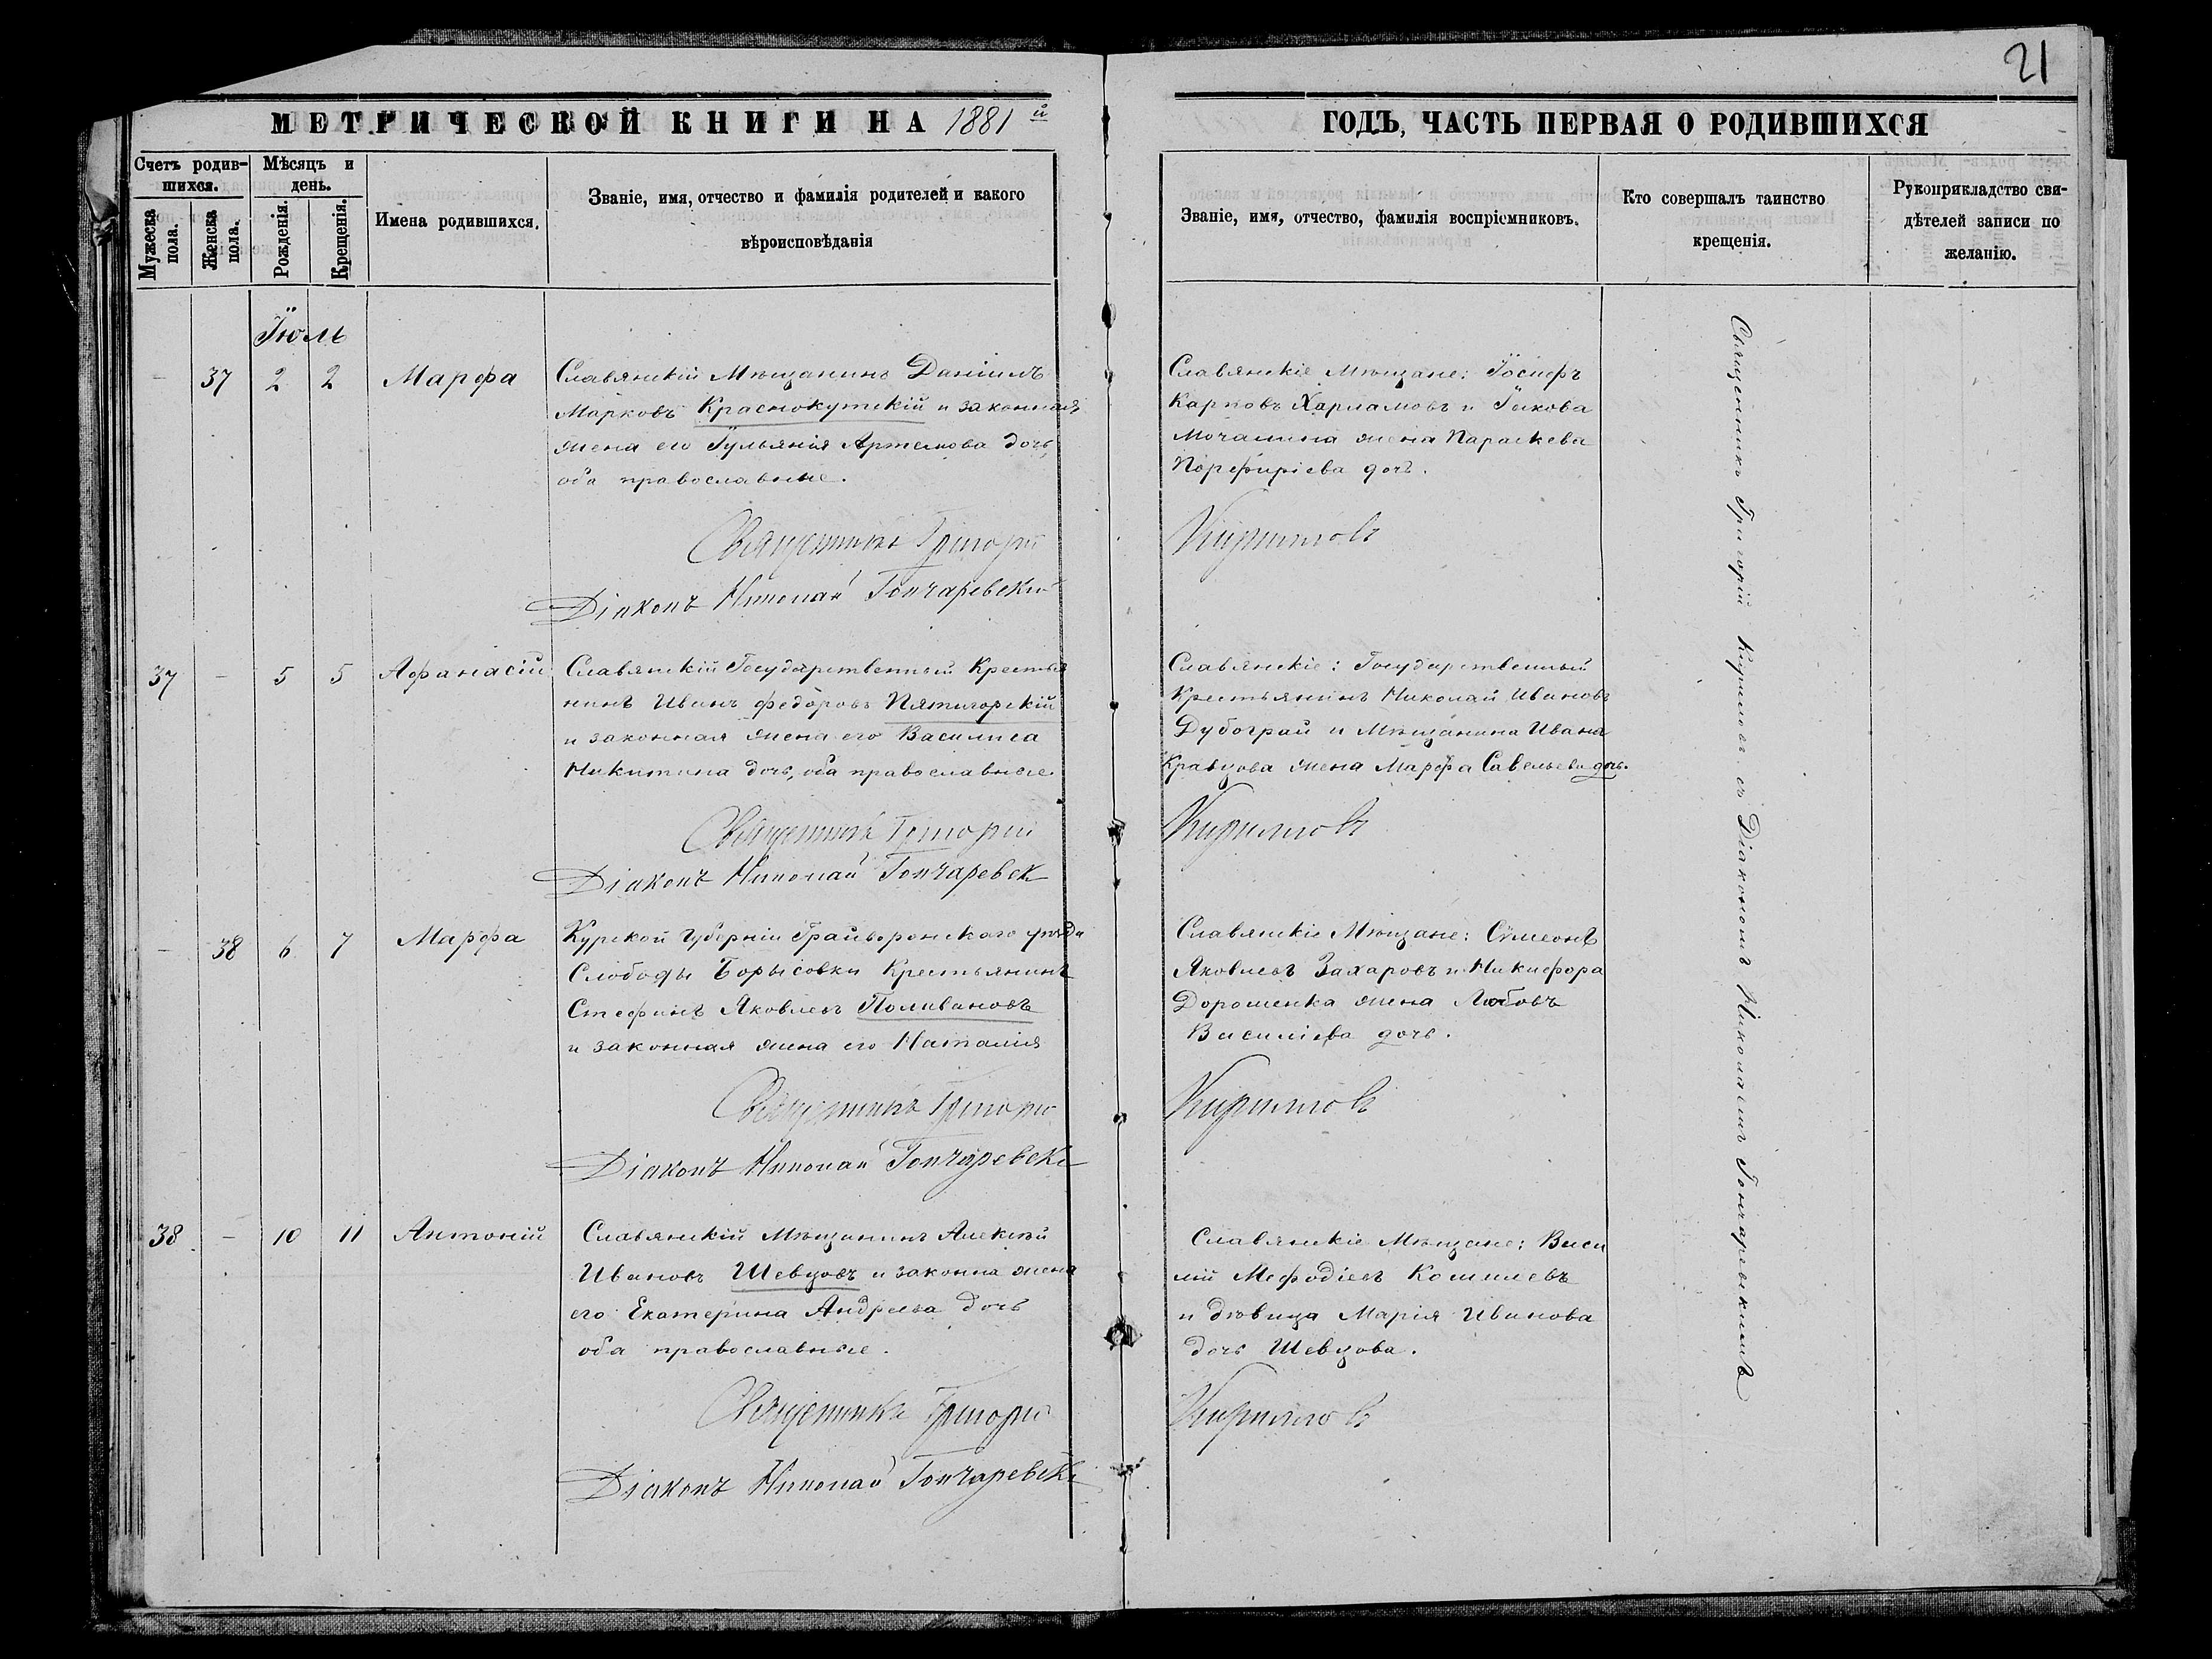 21
МЕТРИЧЕСКОЙ КНИГИ НА 1881й
ГОДЪ, ЧАСТЬ ПЕРВАЯ О РОДИВШИХСЯ
Счетъ родив-
шихся.
Мужеска
пола.
Женска
пола.
Мѣсяцъ и
день.
Рожденія.
Крещенія.
Имена родившихся.
Званіе, имя, отчество и фамилія родителей и какого
вѣроисповѣданія
Званіе, имя, отчество, фамилія воспріемниковъ.
Кто совершалъ таинство
крещенія.
Рукоприкладство сви-
дѣтелей записи по
желанію.
Іюль
- 37 2 2 Марфа
Славянскій Мѣщанинъ Даніилъ
Марковъ Краснокутскій и законная
жена его Іульянія Артемова дочь,
оба православные.
Священникъ Григорій
Діаконъ Николай Гончаревскій
Славянскіе Мѣщане: Іосифъ
Карповъ Харламовъ и Іакова
Мочалина жена Параскева
Порфиріева дочь.
Кирилловъ
37 - 5 5 Афанасій
Славянскій Государственный Крестья
нинъ Иванъ Федоровъ Пятигорскій
и законная жена его Василиса
Никитина дочь, оба православные.
Священникъ Григорій
Діаконъ Николай Гончаревск
Славянскіе: Государственный
Крестьянинъ Николай Ивановъ
Дубограй и Мѣщанина Ивана
Кравцова жена Марфа Савельева дочь.
Кирилловъ
- 38 6 7 Марфа
Курской Губерніи Грайворонскаго уѣзда
Слободы Борысовки Крестьянинъ
Стефанъ Яковлевъ Поливановъ
и законная жена его Наталія
Священникъ Григорій
Діаконъ Николай Гончаревск
Славянскіе Мѣщане: Сѵмеонъ
Яковлевъ Захаровъ и Никифора
Дорошенка жена Любовь
Василіева дочь.
Кирилловъ
38 - 10 11 Антоній
Славянскій Мѣщанинъ Алексѣй
Ивановъ Шевцовъ и законна жена
его Екатерина Андреева дочь
оба православные.
Священникъ Григорій
Діаконъ Николай Гончаревск
Славянскіе Мѣщане: Васи
лій Мефодіевъ Кошилевъ
и дѣвица Марія Иванова
дочь Шевцова.
Кирилловъ
Священникъ Григорій Кириловъ съ Діакономъ Николаемъ Гончаревскимъ